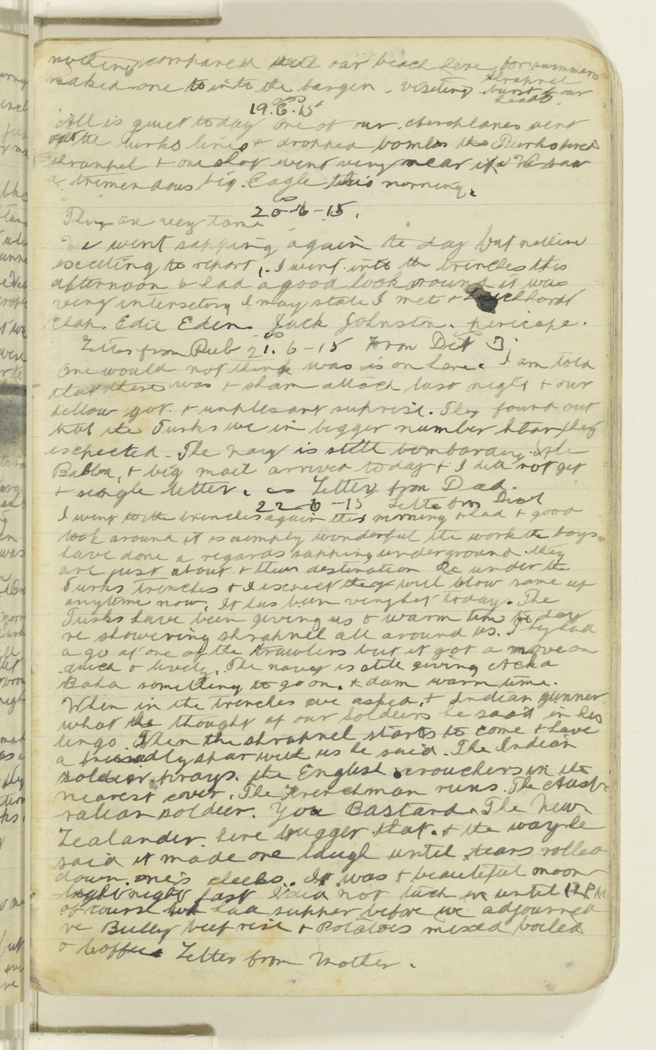 nothing compared with our beach here for swimmers
naked one to into the bargen - viseting shrapnel
burst & our
heads.
19.6.15
All is quiet today one of our airoplanes went
the Turks lines & dropped bombs the Turks
shrapnel & one shot went very near it. We saw
a tremendous big. Eagle this morning.
20-6-15.
They are very tame
We went sapping again to day but nothing
exciting to report. I went into the trenches this
afternoon & had a good look round it was
very intersetory I may state I met a
chap. Edie Eden Jack Johnston.
Letter from Rub 21.6-15 From Dit
One would not think was is on here. I am told
that there was a sham attack last night & our
fellow got a unplesant suprise. They found out
that the Turks we in bigger number than they
expected. The navy is still bombarding
Babba, a big mail arrived today & I did not get
a single letter. Letter from Dad.
22-6-15 Letter from Dick
I went to the trenches again this morning & had a good
look around it is simply wonderful the work the boys
have done a regards sapping underground they
are just about a their destination Re under the
Turks trenches & I expect they will blow some up
anytime now. It has been very hot today. The
Turks have been giving us a warm time to day
re showering shrapnel all around us. They had
a go at one of the trawlers but it got a move on
quick & lively. The navy is still giving Atcha
Baba something to go on. a dam warm time.
When in the trenches we asked. a Indian gunner
what he thought of our soldiers he said in his
lingo. When the shrapnel starts to come & have
a friendly spar with us he said. The Indian
soldier prays. the English crouchers in the
nearest cover. The Frenchman runs. The Aust-
ralian soldier. You Bastard. The New
Zealander. here bugger that. & the way he
said it made one laugh until tears rolled
down one's cheeks. It was a beautiful moon
light night last I did not tuch in until 12 PM
of course we had supper before we adjourned
re Bully beef rise & Potatoes mixed boiled
& Coffee Letter from Mother.